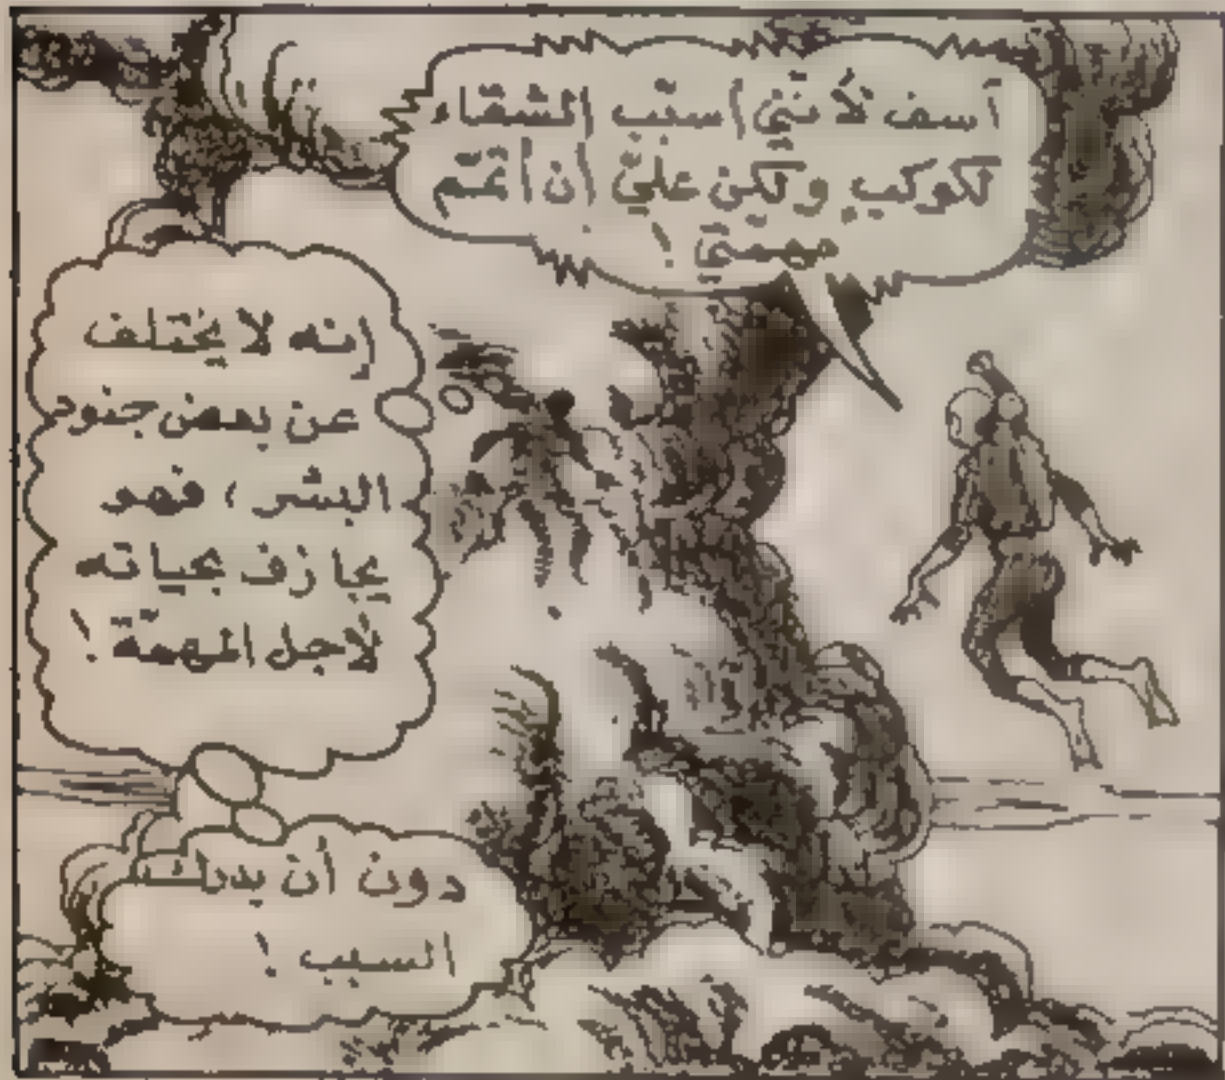 آسف لأنّني أسبّب الشقاء
لكوكبٍ ولكن عليّ أن أتمّم
مهمتي !
إنه لا يختلف
عن بعض جنود
البشر ، فهو
يجازف بحياته
لأجل المهمّة !
دون أن يدرك
السبب !